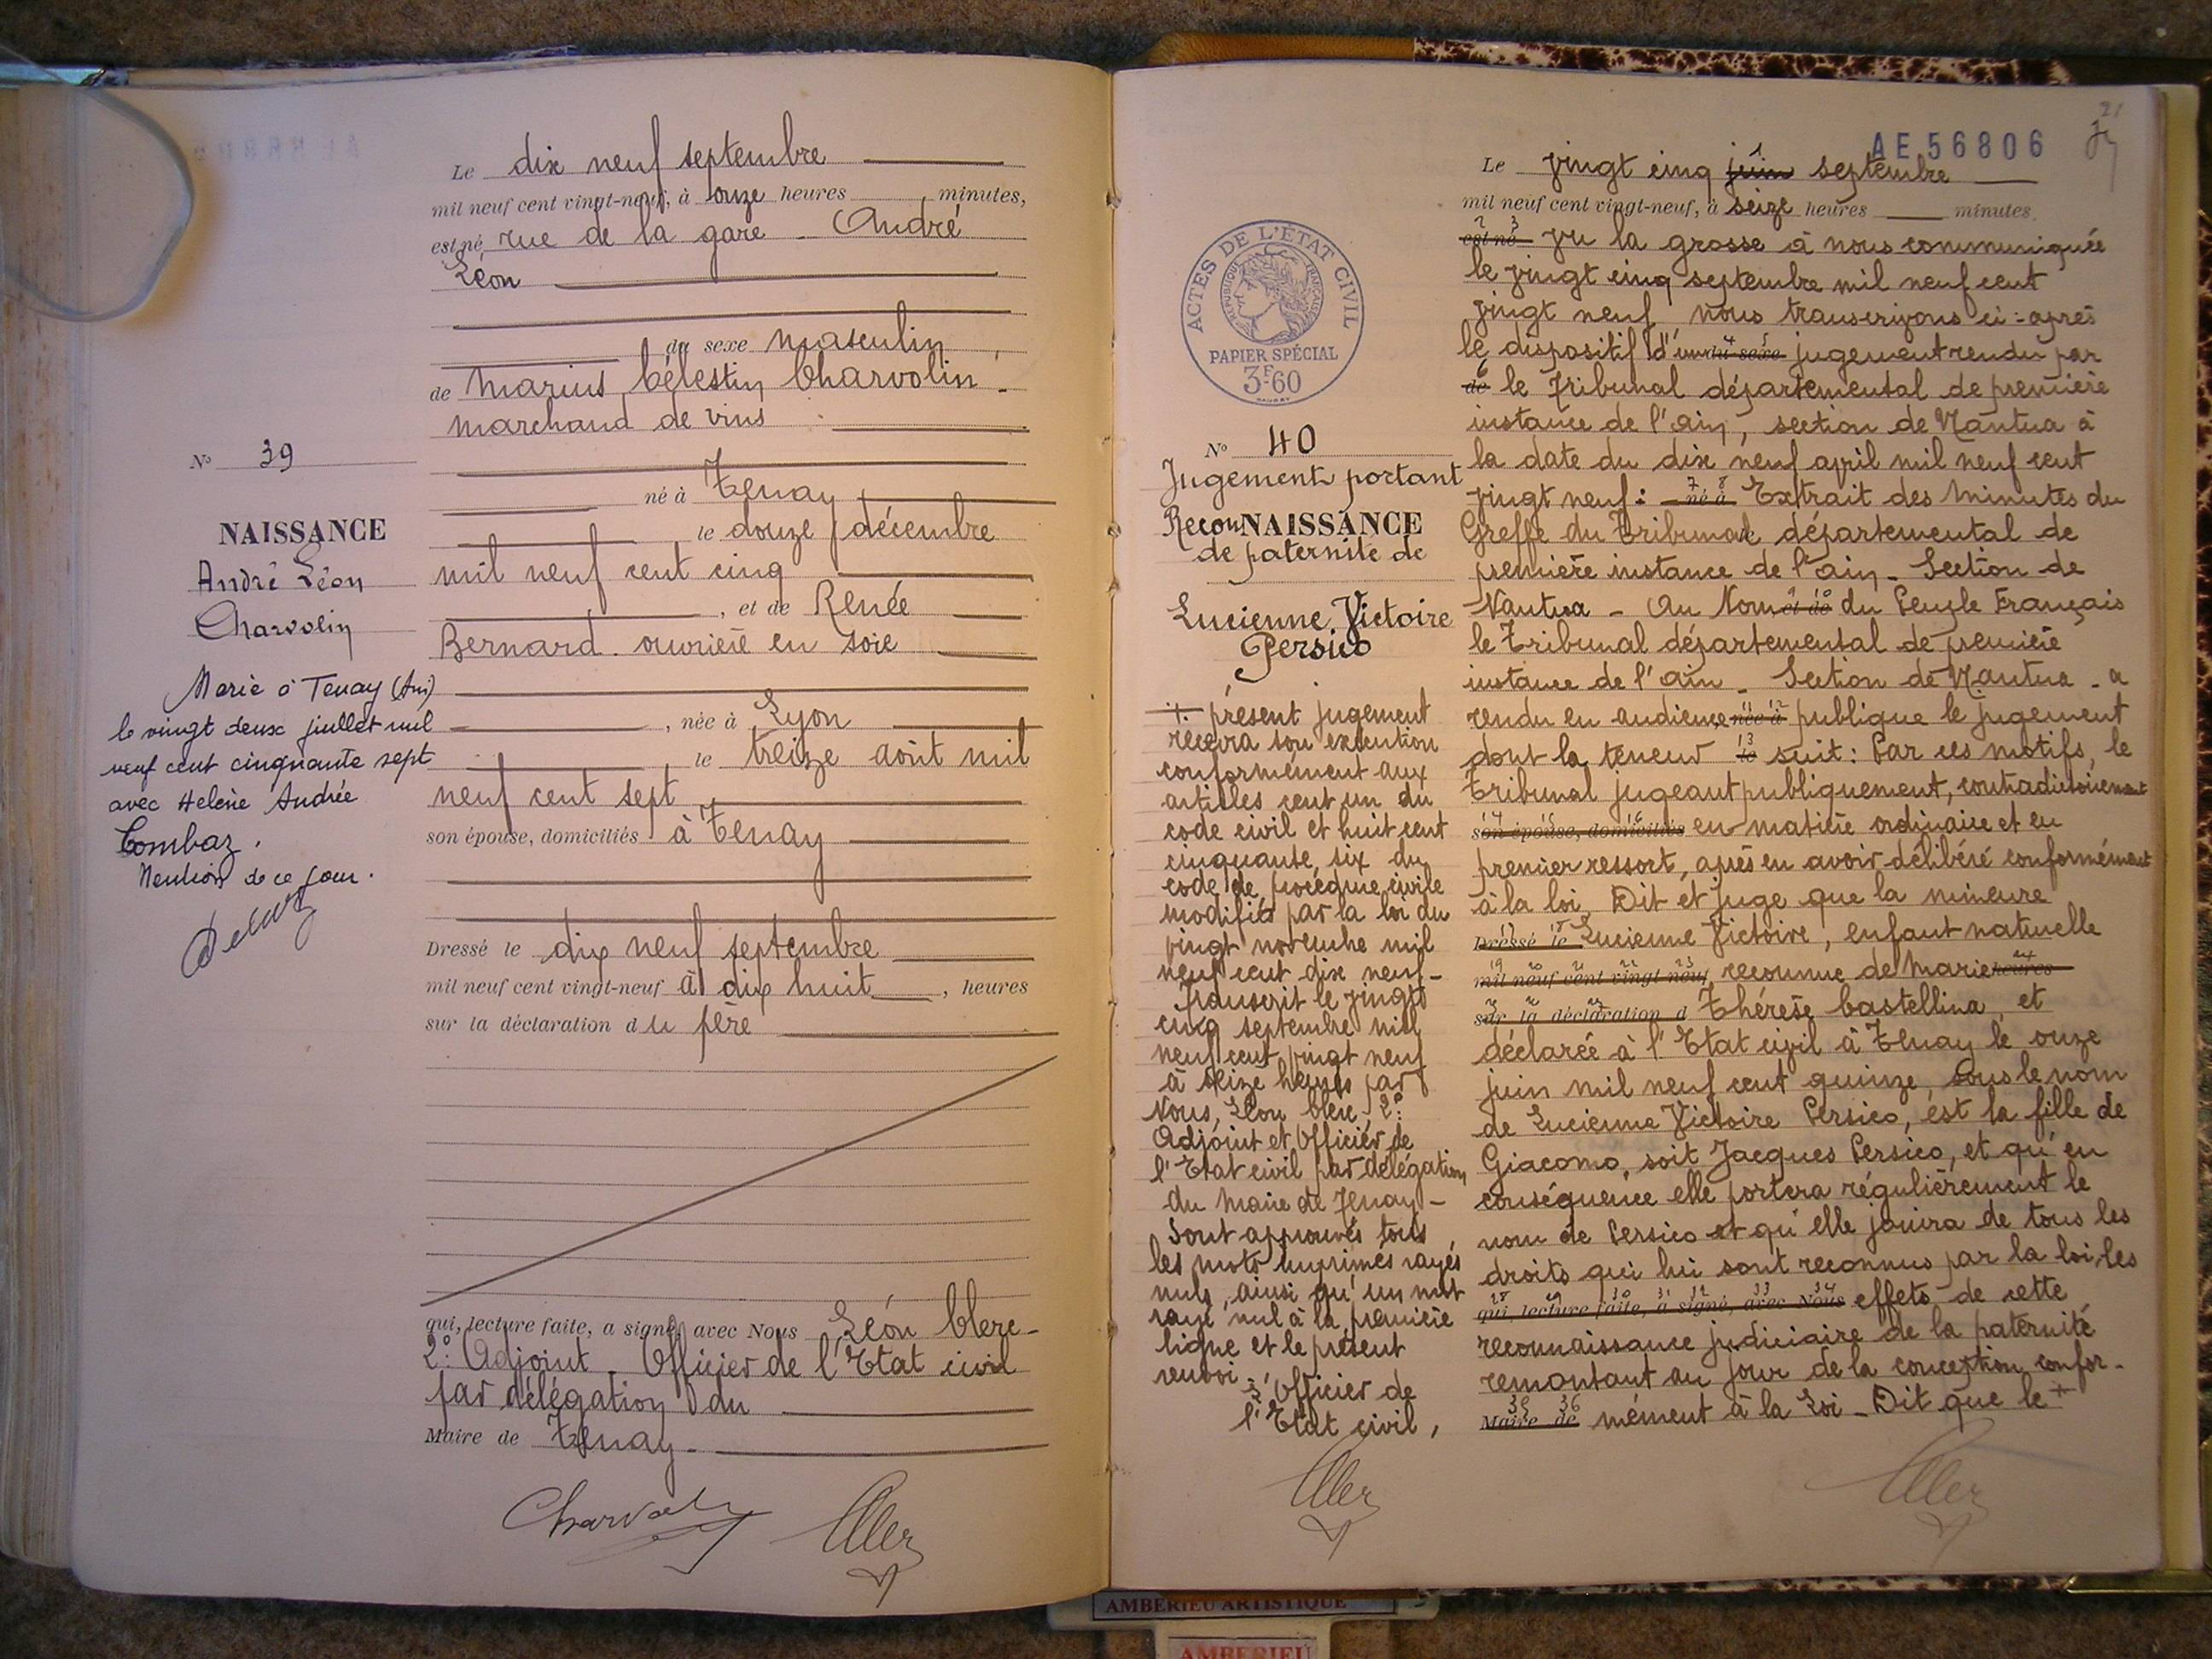 Le dix neuf septembre
mil neuf cent vingt-neuf, à onze heures minutes,
est né rue de la gare - André
Léon
du sexe masculin
de Marius Célestin Charvolin -
marchand de vins
né à Tenay
le douze décembre
mil neuf cent cinq
, et de Renée
Bernard. ouvrière en soie
, née à Lyon
le treize août mil
neuf cent sept
son épouse, domiciliés à Tenay
Dressé le dix neuf septembre
mil neuf cent vingt-neuf à dix huit, heures
sur la déclaration du père
qui, lecture faite, a signé avec Nous Léon Clerc -
2e Adjoint - Officier de l'Etat civil
par délégation du
Maire de Tenay -
Charvolin
No 39
NAISSANCE
André Léon
Charvolin
Marié à Tenay (Ain)
le vingt deux juillet mil
neuf cent cinquante sept
avec Helène Andrée
Combaz.
Mention de ce jour.
21
AE 56806
Le vingt cinq juin septembre
mil neuf cent vingt-neuf, à seize heures minutes
est né vu la grosse à nous communiquée
le vingt cinq septembre mil neuf cent
vingt neuf nous transcrivons ci-après
le dispositif d'un du sexe jugement rendu par
de le Tribunal départemental de première
instance de l'ain, section de Nantua à
la date du dix neuf avril mil neuf cent
vingt neuf : né à Extrait des Minutes du
Greffe du Tribunal départemental de
première instance de l'ain - Section de
Nantua - Au Nom et de du Peuple Français
le Tribunal départemental de première
instance de l'ain - Section de Nantua - a
rendu en audience née à publique le jugement
dont la teneur le suit : Par ces motifs, le
Tribunal jugeant publiquement, contradictoirement
son épouse, domiciliés en matière ordinaire et en
premier ressort, après en avoir délibéré conformément
à la loi Dit et juge que la mineure
Dressé le Lucienne Victoire, enfant naturelle
mil neuf cent vingt-neuf reconnue de Marie heures
sur la déclaration d Thérèse Castellina, et
déclarée à l'Etat civil à Tenay le onze
juin mil neuf cent quinze, sous le nom
de Lucienne Victoire Persico, est la fille de
Giacomo, soit Jacques Persico, et qu'en
conséquence elle portera régulièrement le
nom de Persico et qu'elle jouira de tous les
droits qui lui sont reconnus par la loi, les
qui, lecture faite, a signé, avec Nous effets de cette
reconnaissance judiciaire de la paternité
remontant au jour de la conception confor-
Maire de mément à la Loi - Dit que le +
ACTES DE L'ÉTAT CIVIL
RÉPUBLIQUE FRANÇAISE
PAPIER SPÉCIAL
3F60
No 40
Jugement portant
ReconNAISSANCE
de paternité de
Lucienne Victoire
Persico
+ présent jugement
recevra son exécution
conformément aux
articles cent un du
code civil et huit cent
cinquante six du
code de procédure civile
modifiés par la loi du
vingt novembre mil
neuf cent dix neuf -
Transcrit le vingt
cinq septembre mil
neuf cent vingt neuf
à seize heures par
Nous, Léon Clerc 2e
Adjoint et Officier de
l'Etat civil par délégation
du Maire de Tenay -
Sont approuvés tous
les mots imprimés rayés
nuls, ainsi qu'un mot
rayé nul à la première
ligne et le présent
renvoi -
L'Officier de
l'Etat civil,
AMBERIEU ARTISTIQUE
AMBERIEU